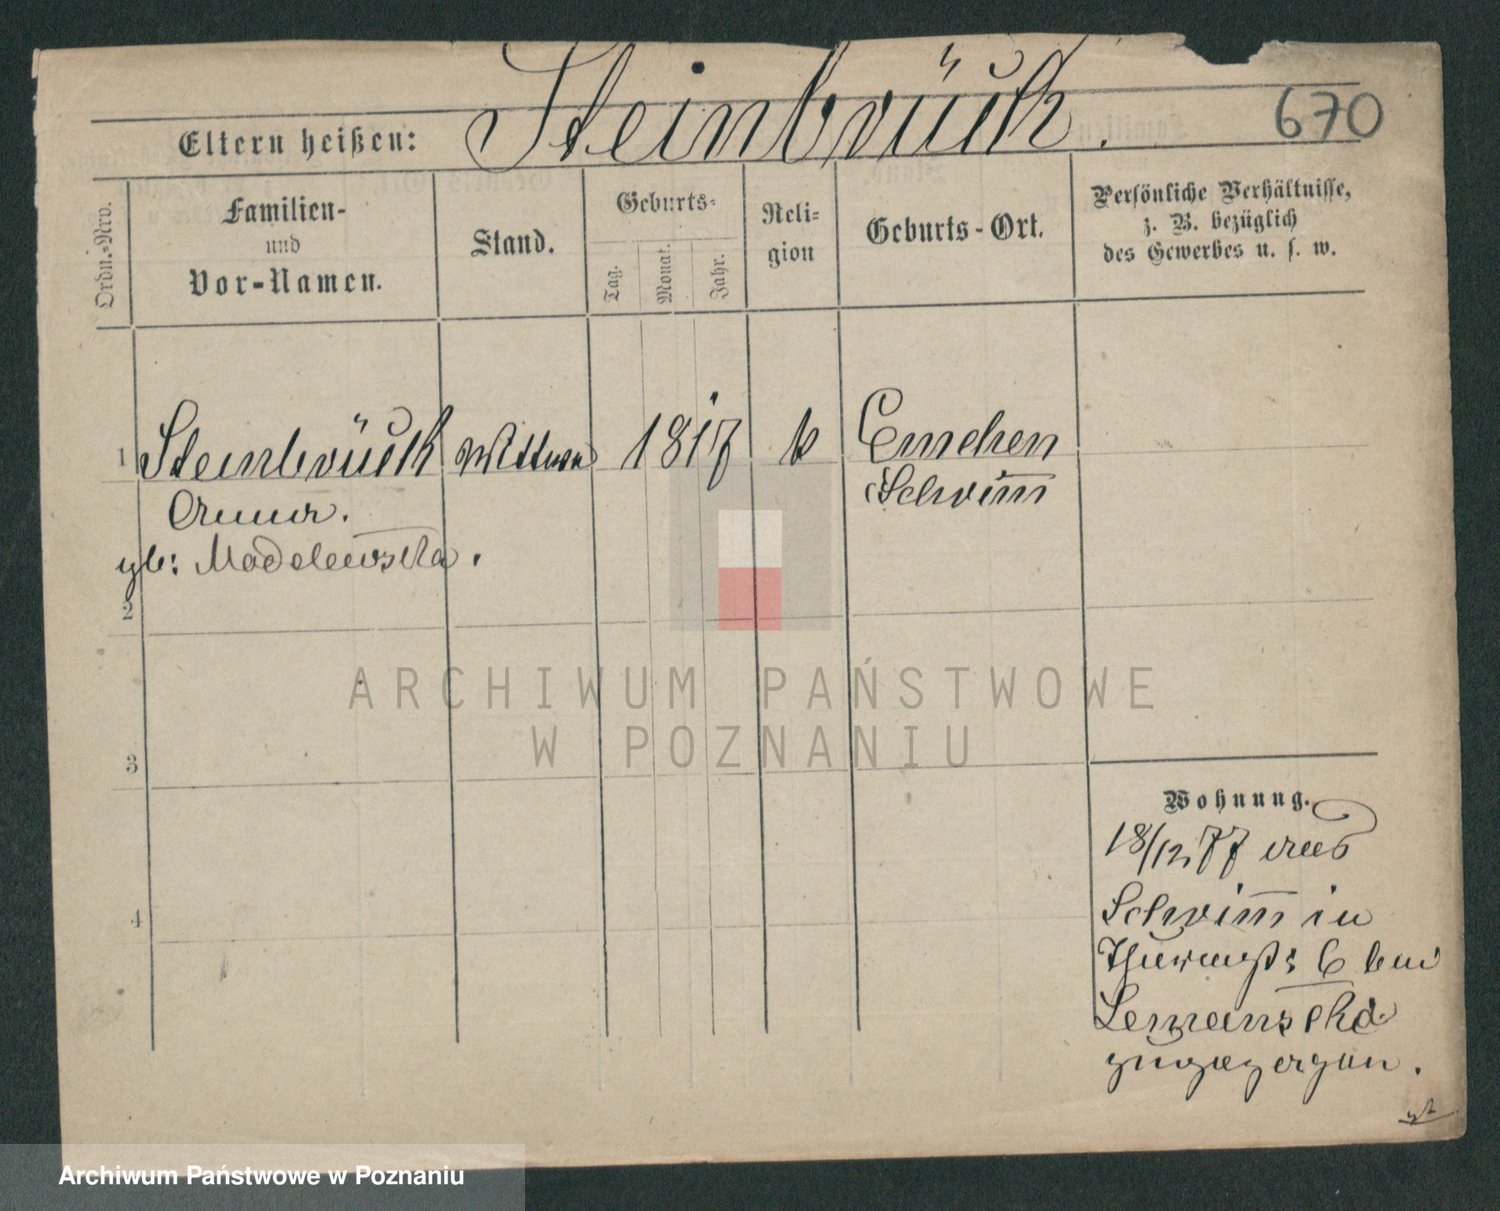 Steinbrück.
670
Eltern heißen:
Ordn.-Nro.
Familien-
und
Vor-Namen.
Stand.
Geburts-
Tag.
Monat.
Jahr.
Reli-
gion
Geburts-Ort.
Persönliche Verhältnisse,
z. B. bezüglich
des Gewerbes u. s. w.
1 Steinbrück Wittwe 1817 k Emchen
Anna. Schrim̅
gb: Modelewska.
2
3
4
Wohnung.
18/12 77 aus
Schrim̅ in
Thurmst: 6 bei
zugezogen.
ARCHIWUM PAŃSTWOWE
W POZNANIU
Archiwum Państwowe w Poznaniu